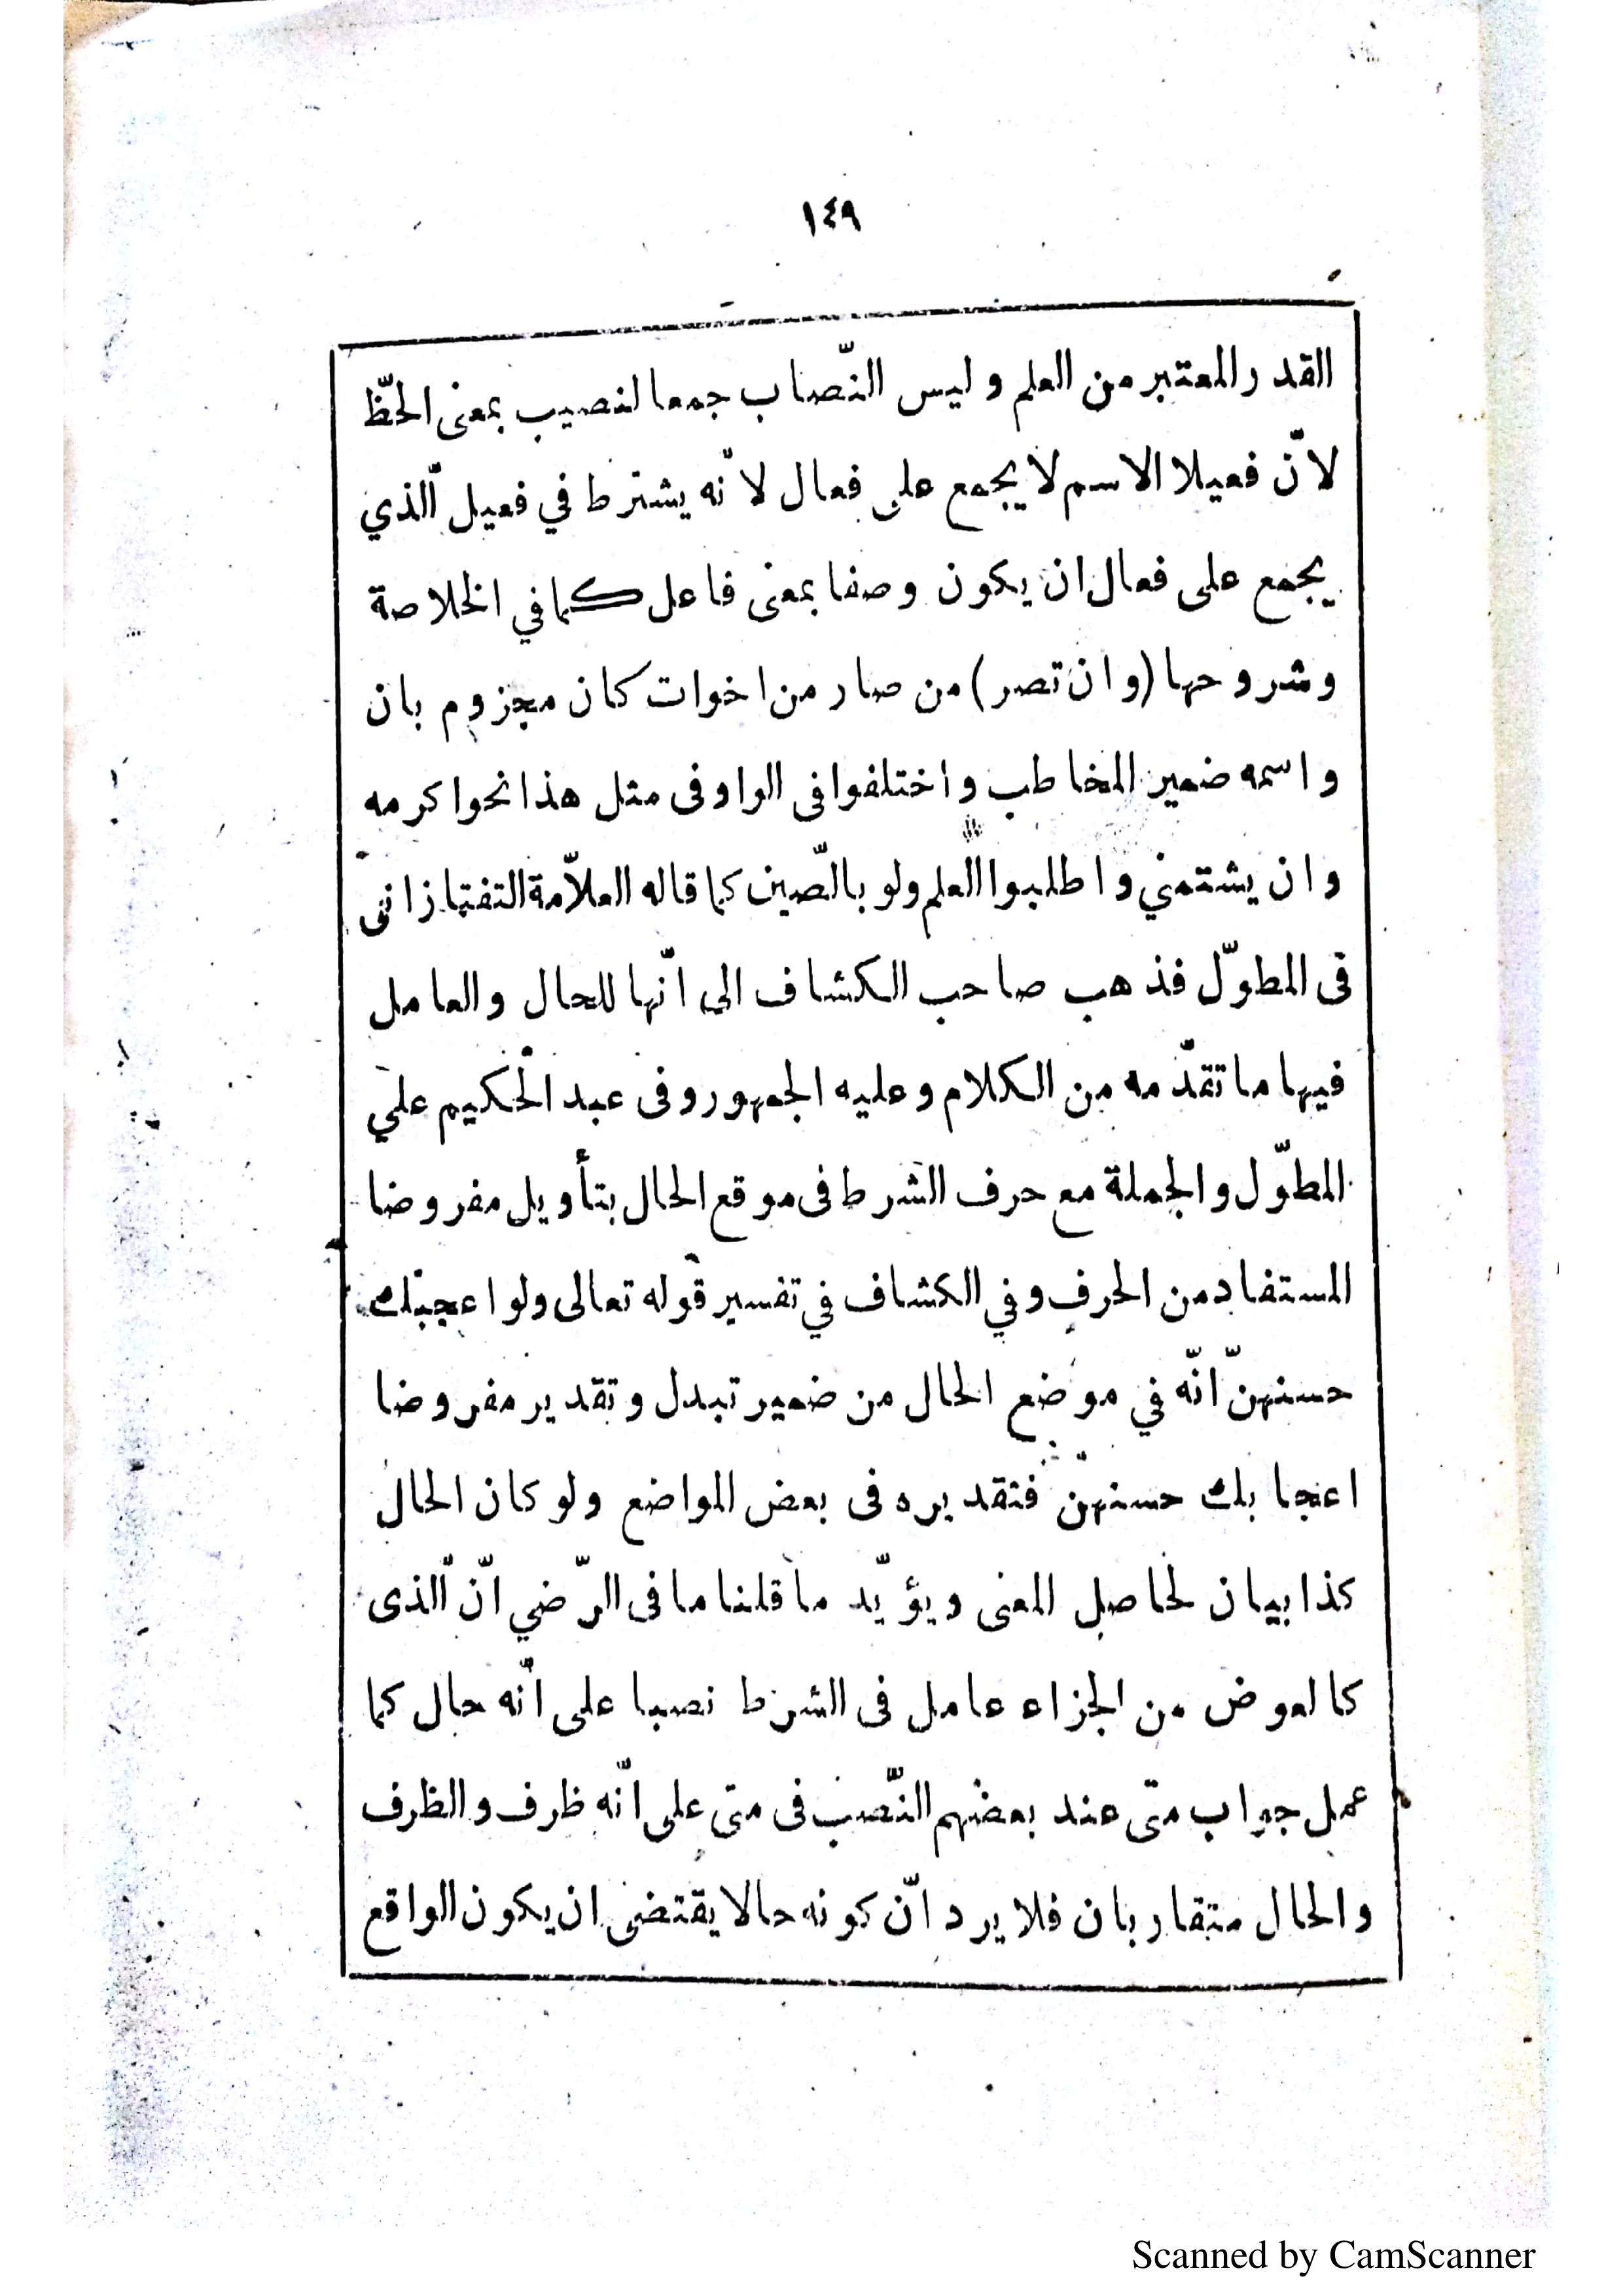 ١٤٩
القدر المعتبر من العلم وليس النّصاب جمعا لنصيب بمعنى الحظّ
لانّ فعيلا الاسم لا يجمع على فعال لانّه يشترط في فعيل الّذي
يجمع على فعال ان يكون وصفا بمعنى فاعل كما في الخلاصة
وشروحها (وان تصر) من صار من اخوات كان مجزوم بان
واسمه ضمير المخاطب واختلفوا فى الواو فى مثل هذا نحو اكرمه
وان يشتمني واطلبوا العلم ولو بالصّين كما قاله العلاّمة التفتازانى
فى المطوّل فذهب صاحب الكشاف الى انّها للحال والعامل
فيها ما تقدّمه من الكلام وعليه الجمهور وفى عبد الحكيم علي
المطوّل والجملة مع حرف الشرط فى موقع الحال بتأويل مفروضا
المستفاد من الحرف وفي الكشاف في تفسير قوله تعالى ولو اعجبك
حسنهنّ انّه في موضع الحال من ضمير تبدل وتقديره مفروضا
اعجابك حسنهنّ فتقديره فى بعض المواضع ولو كان الحال
كذا بيان لحاصل المعنى ويؤيّد ما قلنا ما فى الرّضي انّ الّذى
كالعوض من الجزاء عامل فى الشرط نصبا على انّه حال كما
عمل جواب متى عند بعضهم النّصب فى متى على انّه ظرف والظرف
والحال متقاربان فلا يرد انّ كونه حالا يقتضى ان يكون الواقع
Scanned by CamScanner